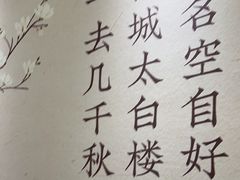 名空自好
城太白楼
去几千秋